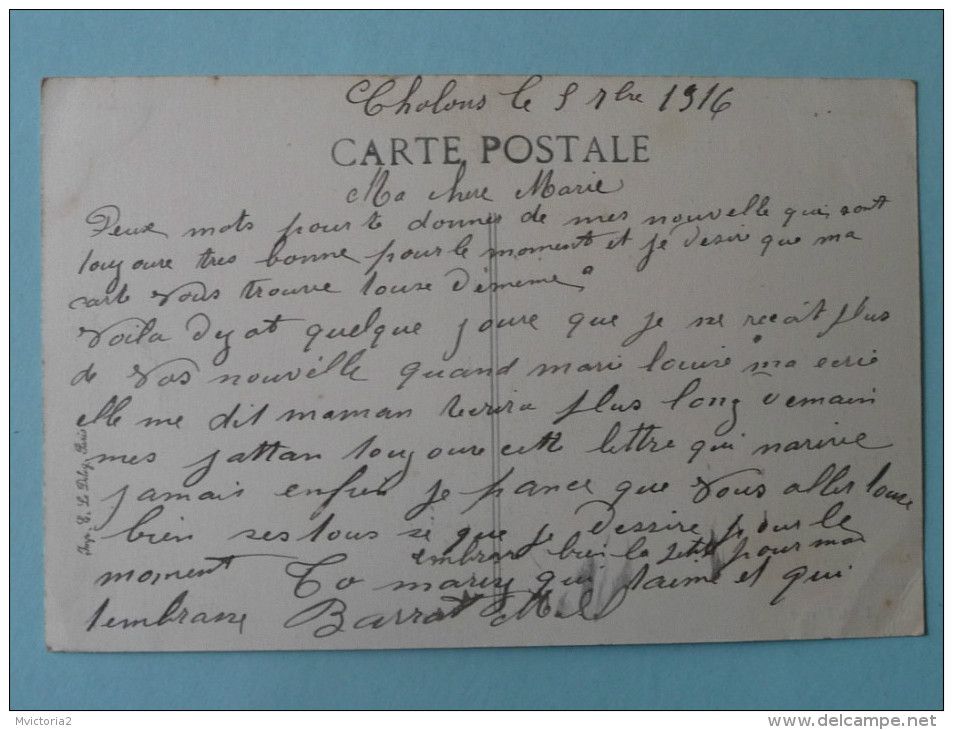 Cholons le 5 7bre 1916
CARTE POSTALE
Ma chere Marie
Deux mots pour te donner de mes nouvelle qui sont
toujoure tres bonne pour le moment et je desire que ma
carte vous trouve touse démeme
Voila dejat quelque joure que je ne recoit plus
de vos nouvelle quand mari louise ma ecrie
elle me dit maman tecrira plus long demain
mes jattan toujoure cette lettre qui narive
jamais enfin je pance que vous aller touse
bien ses tous se que je dessire pour le
embrase bien la petite pour moi
moment To marey qui taime et qui
tembrasse Barrat
Imp. E. Le Deley, Paris
Mvictoria2
www.delcampe.net